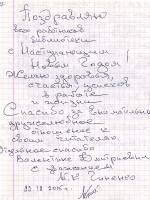 Поздравляю
всех работников
библиотеки
с Наступающим
Новым Годом!
Желаю здоровья,
счастья, успехов
в работе
и жизни
Спасибо за внимательное
дружелюбное
отношение к
своим читателям
Отдельное спасибо
Валентине Дмитриевне
с уважением
22.12.2015г.